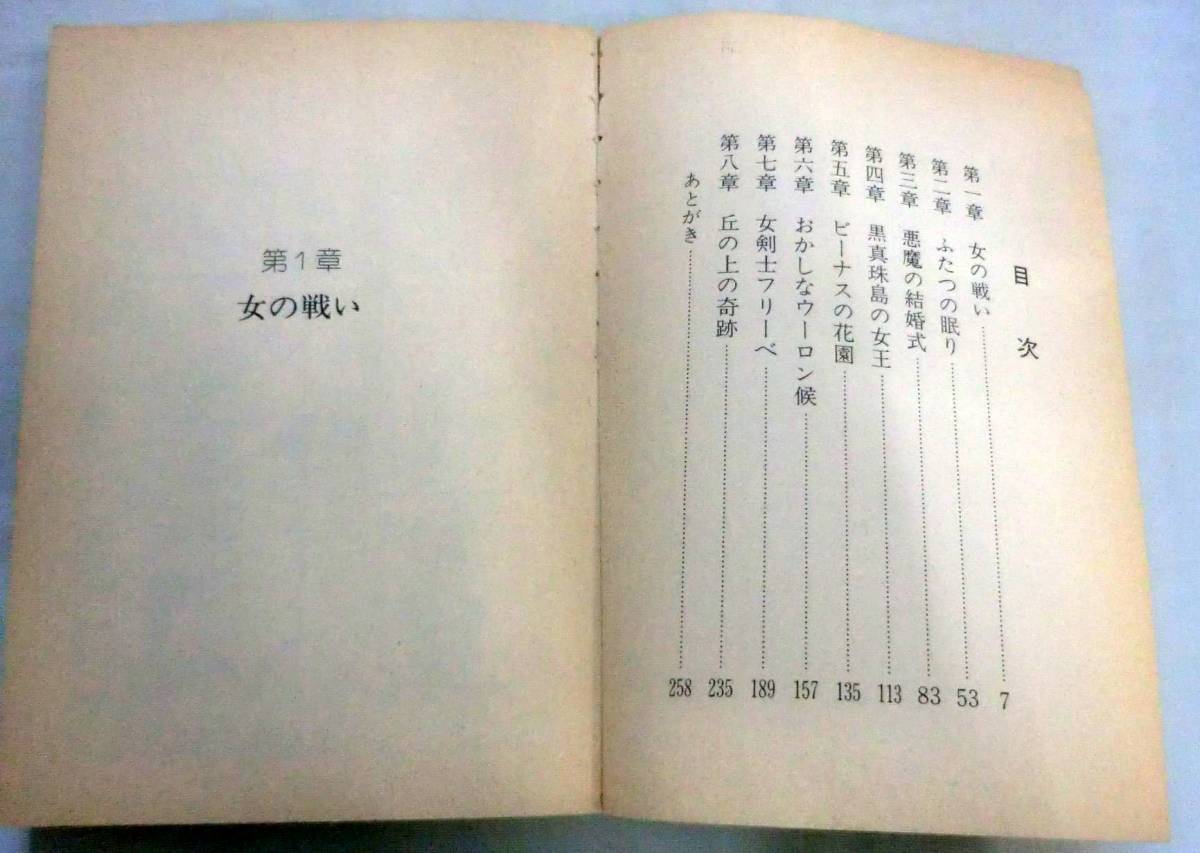 目次
第一章 女の戦い……7
第二章 ふたつの眠り……53
第三章 悪魔の結婚式……83
第四章 黒真珠島の女王……113
第五章 ビーナスの花園……135
第六章 おかしなウーロン候……157
第七章 女剣士フリーベ……189
第八章 丘の上の奇跡……235
あとがき……258
第1章
女の戦い